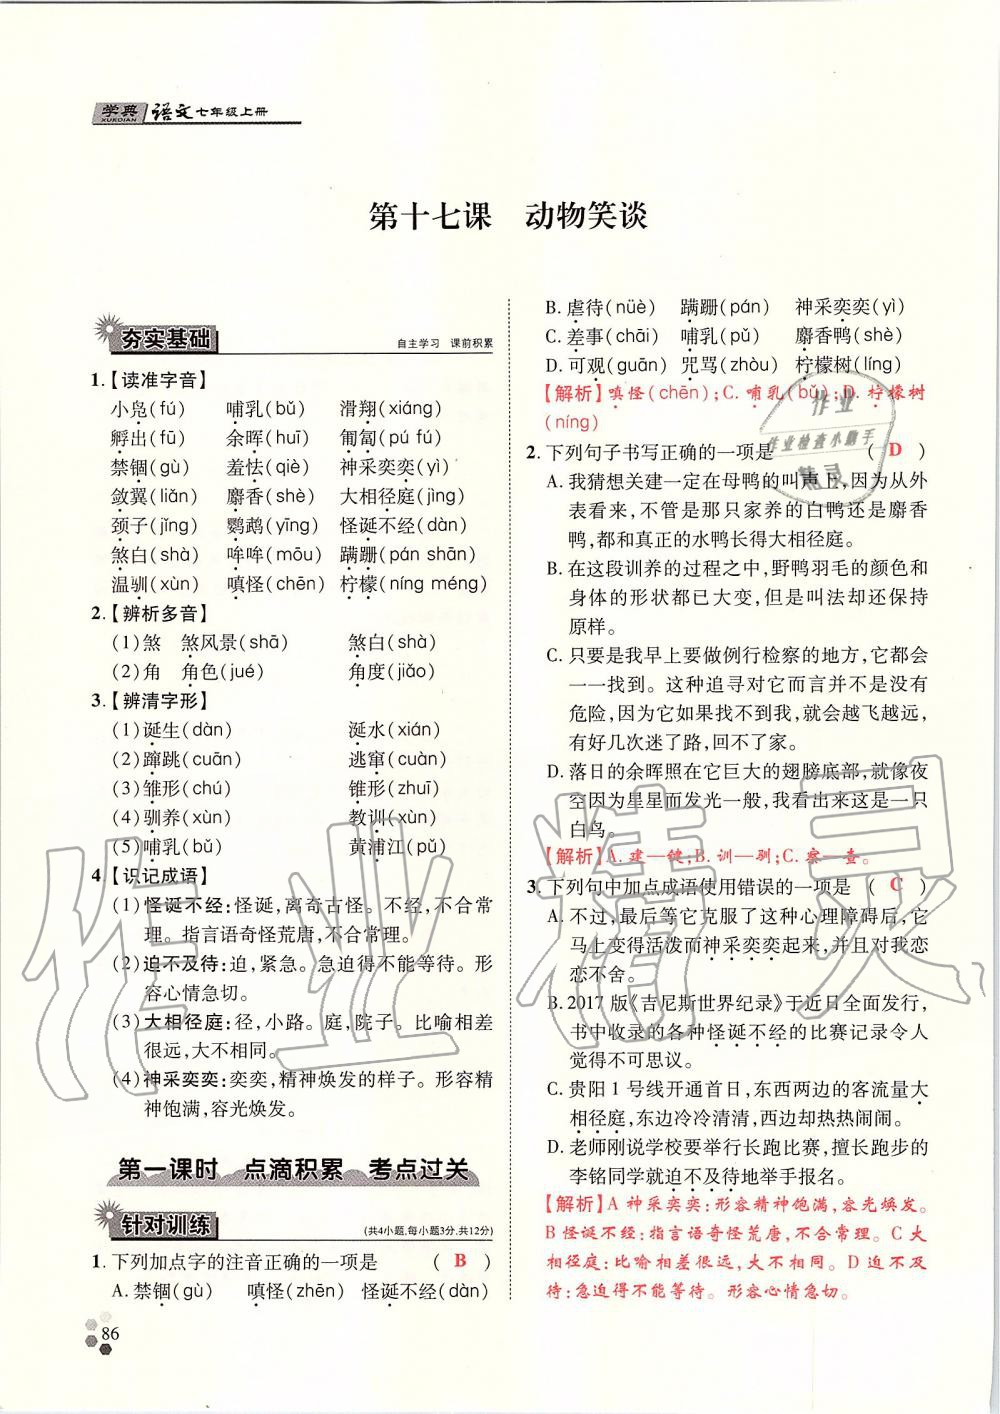 学典 XUEDIAN 语文七年级上册
第十七课 动物笑谈
夯实基础 自主学习 课前积累
1.【读准字音】
小凫(fú) 哺乳(bǔ) 滑翔(xiáng)
孵出(fū) 余晖(huī) 匍匐(pú fú)
禁锢(gù) 羞怯(qiè) 神采奕奕(yì)
敛翼(liǎn) 麝香(shè) 大相径庭(jìng)
颈子(jǐng) 鹦鹉(yīng) 怪诞不经(dàn)
煞白(shà) 哞哞(mōu) 蹒跚(pán shān)
温驯(xùn) 嗔怪(chēn) 柠檬(níng méng)
2.【辨析多音】
(1)煞 煞风景(shā) 煞白(shà)
(2)角 角色(jué) 角度(jiǎo)
3.【辨清字形】
(1)诞生(dàn) 涎水(xián)
(2)蹿跳(cuān) 逃窜(cuàn)
(3)雏形(chú) 锥形(zhuī)
(4)驯养(xùn) 教训(xùn)
(5)哺乳(bǔ) 黄浦江(pǔ)
4.【识记成语】
(1)怪诞不经:怪诞,离奇古怪。不经,不合常
理。指言语奇怪荒唐,不合常理。
(2)迫不及待:迫,紧急。急迫得不能等待。形
容心情急切。
(3)大相径庭:径,小路。庭,院子。比喻相差
很远,大不相同。
(4)神采奕奕:奕奕,精神焕发的样子。形容精
神饱满,容光焕发。
第一课时 点滴积累 考点过关
针对训练 (共4小题,每小题3分,共12分)
1.下列加点字的注音正确的一项是 ( B )
A.禁锢(gù) 嗔怪(zhēn) 怪诞不经(dàn)
B.虐待(nüè) 蹒跚(pán) 神采奕奕(yì)
C.差事(chāi) 哺乳(pǔ) 麝香鸭(shè)
D.可观(guān) 咒骂(zhòu) 柠檬树(líng)
【解析】A.嗔怪(chēn);C.哺乳(bǔ);D.柠檬树
(níng)
2.下列句子书写正确的一项是 ( D )
A.我猜想关建一定在母鸭的叫声上,因为从外
表看来,不管是那只家养的白鸭还是麝香
鸭,都和真正的水鸭长得大相径庭。
B.在这段训养的过程之中,野鸭羽毛的颜色和
身体的形状都已大变,但是叫法却还保持
原样。
C.只要是我早上要做例行检察的地方,它都会
一一找到。这种追寻对它而言并不是没有
危险,因为它如果找不到我,就会越飞越远,
有好几次迷了路,回不了家。
D.落日的余晖照在它巨大的翅膀底部,就像夜
空因为星星而发光一般,我看出来这是一只
白鸟。
【解析】A.建—键;B.训—驯;C.察—查。
3.下列句中加点成语使用错误的一项是 ( C )
A.不过,最后等它克服了这种心理障碍后,它
马上变得活泼而神采奕奕起来,并且对我恋
恋不舍。
B.2017版《吉尼斯世界纪录》于近日全面发行,
书中收录的各种怪诞不经的比赛记录令人
觉得不可思议。
C.贵阳1号线开通首日,东西两边的客流量大
相径庭,东边冷冷清清,西边却热热闹闹。
D.老师刚说学校要举行长跑比赛,擅长跑步的
李铭同学就迫不及待地举手报名。
【解析】A神采奕奕:形容精神饱满,容光焕发。
B怪诞不经:指言语奇怪荒唐,不合常理。C大
相径庭:比喻相差很远,大不相同。D迫不及
待:急迫得不能等待。形容心情急切。
86
作业精灵
作业
作业检查小助手
精灵